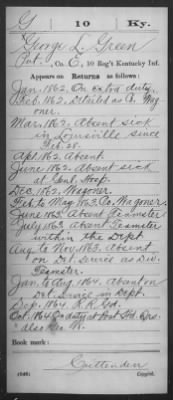 G | 10 | Ky.
George L. Green
Pvt., Co. E, 10 Reg't Kentucky Inf.
Appears on Returns as follows:
Jan. 1862. On extra duty.
Feb. 1862. Detailed as Co. Wag
oner.
Mar. 1862. Absent sick
in Louisville since
Feb. 28.
Apl. 1862. Absent.
June 1862. Absent sick
at Genl. Hosp.
Dec. 1862. Wagoner.
Feb. to May 1863. Co. Wagoner.
June 1863. Absent Teamster
July 1863. Absent Teamster
within the Dept.
Aug. to Nov. 1863. Absent
on Det. service as Div.
Teamster.
Jan. to Aug. 1864. Absent on
Det. Service in Dept.
Sep. 1864. R. R. Gd.
Oct. 1864 On duty at
also Geo. W.
Book mark:
Crittenden
(546) Copyist.